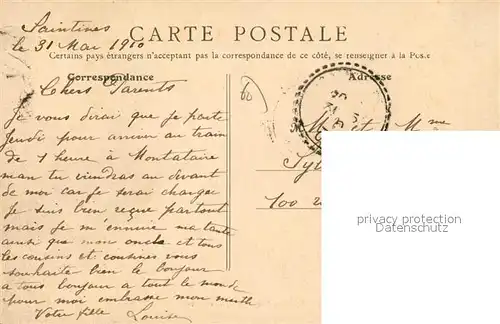 Saintines
le 31 Mai 1910
CARTE POSTALE
Certains pays étrangers n'acceptant pas la correspondance de ce côté, se renseigner à la Poste
Correspondance
Adresse
Chers Parents
Je vous dirai que je parte
Jeudi pour arriver au train
de 1 heure à Montataire
man tu viendras au devant
de moi car je serai chargée
Je suis bien reçue partout
mais je m'ennuie ma tante
ainsi que mon oncle et tous
les cousins et cousines vous
souhaite bien le bonjour
a tous bonjour a tout le monde
pour moi embrasse mon
Votre fille Louise
M et Mme
100
privacy protection
AK-Ansichtskarte